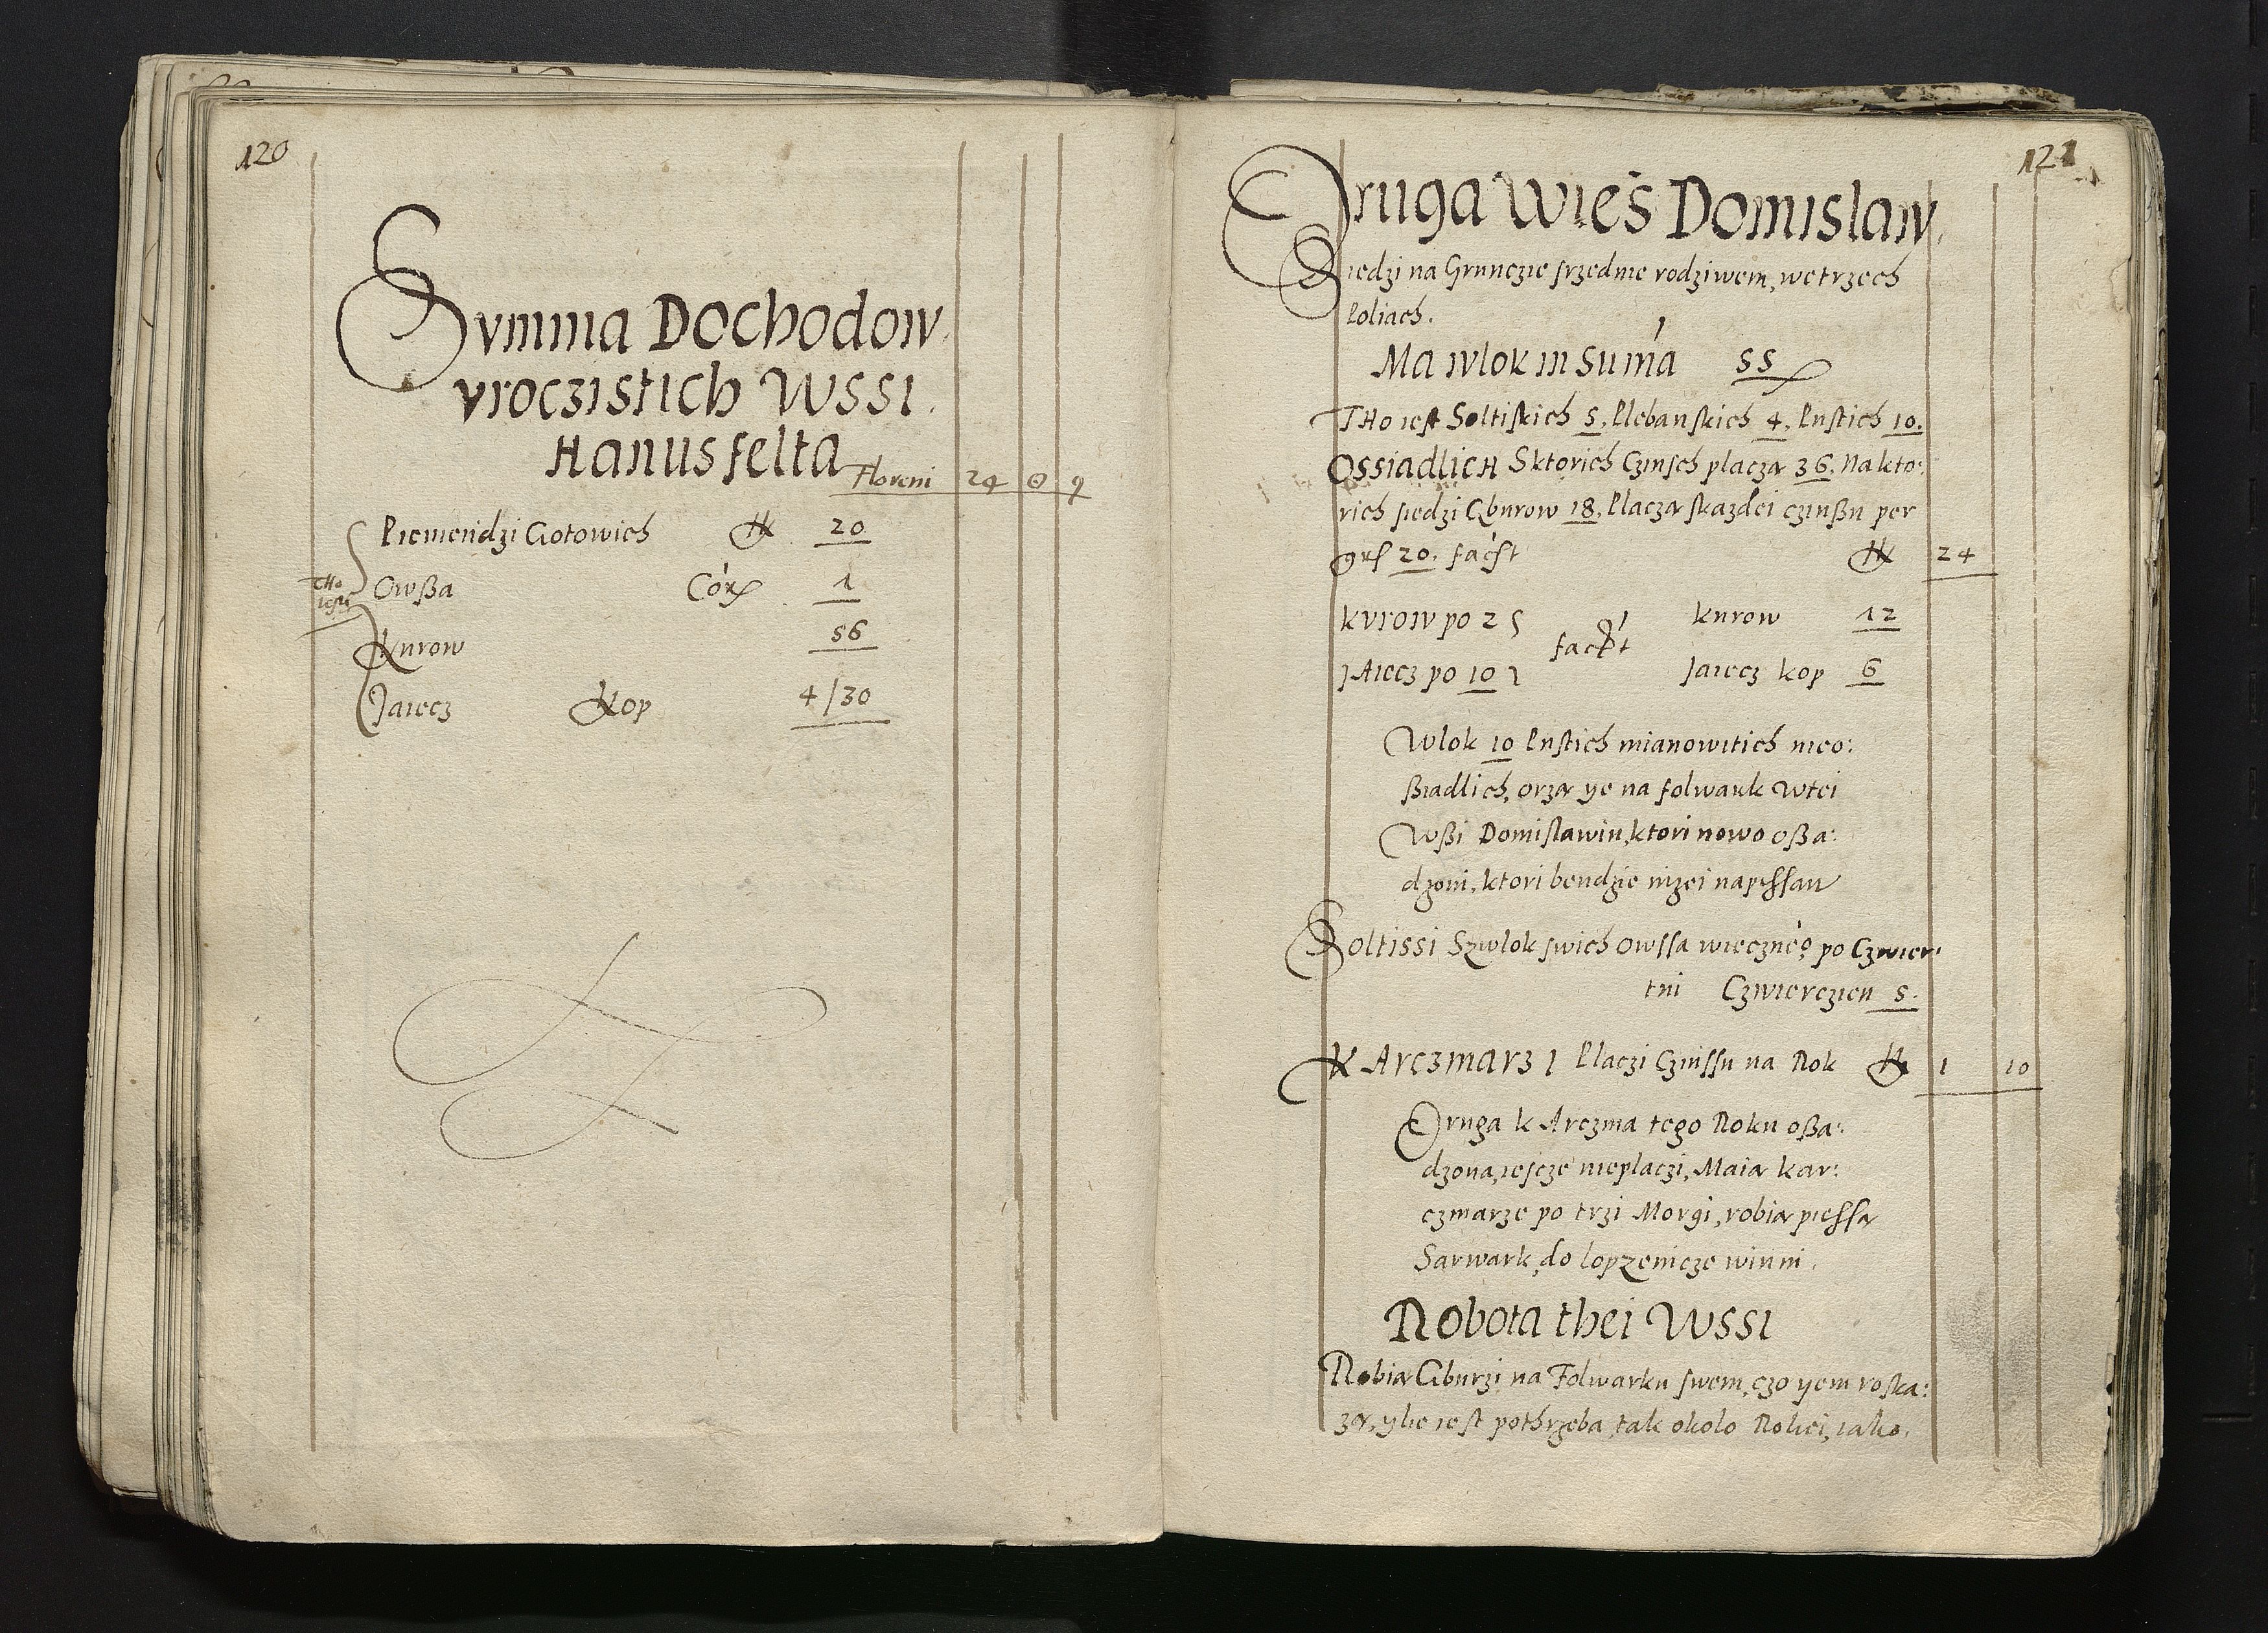 120
Summa Dochodow
vroczistich Wssi
Hanusfelta Floreni 24 0 9
Pieniendzi Gotowich fl 20
THo iest
Owßa Cor 1
Kurow 56
Jaiecz Kop 4/30
121
Druga Wieś Domislaw.
Siedzi na Grunczie srzednie rodziwem, we trzech
Poliach.
Ma wlok in Suma 55
THo iest Soltiskich 5. Plebanskich 4. Pustich 10.
OssiadlicH Sktorich Czinsch placza 36. Na kto:
rich siedzi Gburow 18. Placza skazdei czinßu per
grs 20. facst fl 24
kurow po 2 kurow 12
facit
JAiecz po 10 Jaiecz kop 6
Wlok 10 Pustich mianowitich nieo:
ßiadlich, orza ye na folwark Wtei
Wßi Domislawiu, ktori nowo oßa:
dzoni, ktori bendzie nizei napissan
Soltissi Szwlok swich Owssa wieczneo po Czwier:
tni Czwierczien 5.
KArczmarz 1 Placzi Czinssu na Rok fl 1 10
Druga kArczma tego Roku oßa:
dzona, iescze nieplaczi, Maia kar:
czmarze po trzi Morgi, robia piessa
Sarwark, do lopzenicze winni.
Robota thei Wssi
Robia Gburzi na Folwarku swem, czo yem roska:
za, yle iest pothrzeba, tak okolo Roliei, iako.